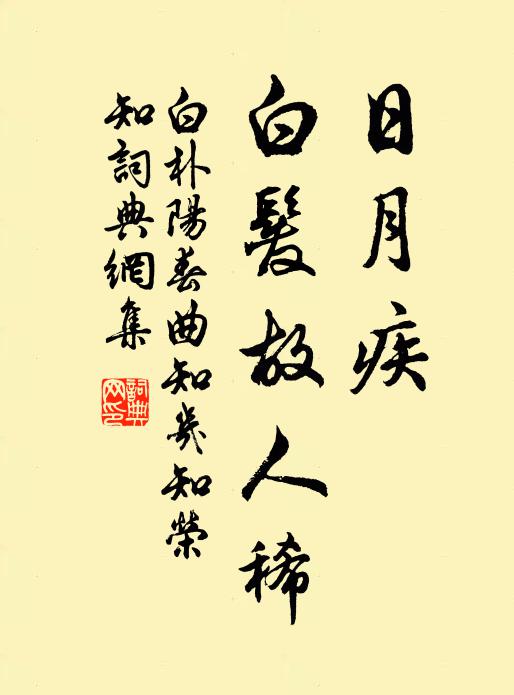 日月疾
白髮故人稀
白朴陽春曲知幾知榮
知詞典網集
詞典
网印